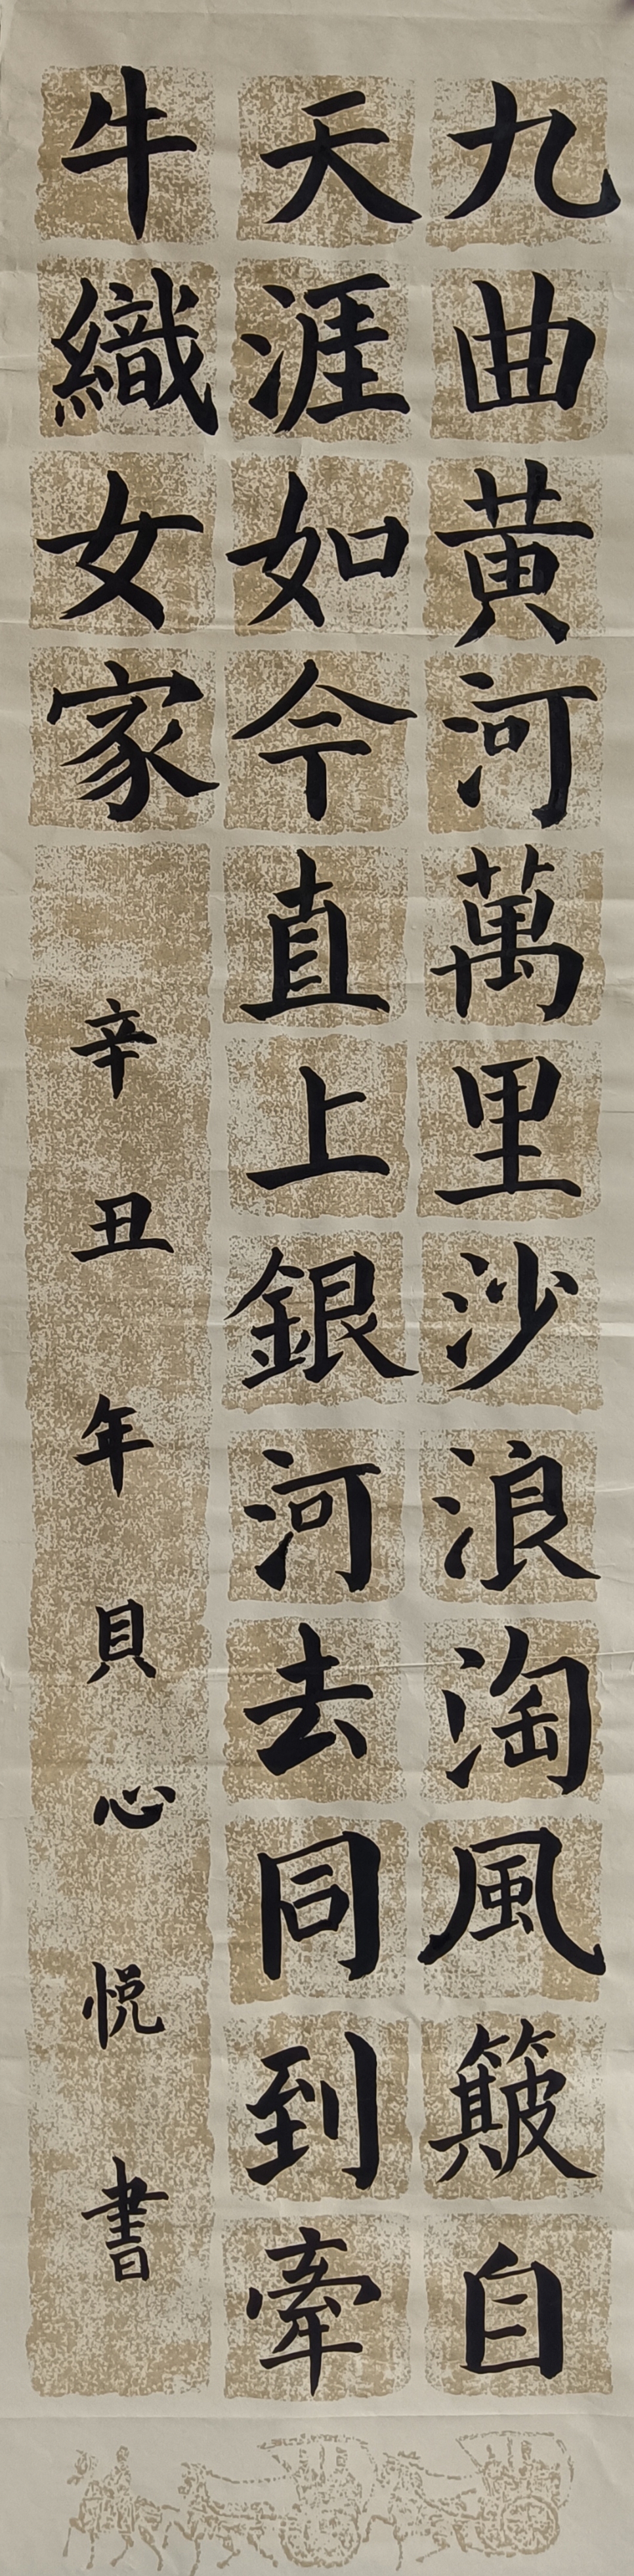 九曲黄河萬里沙浪淘風簸自
天涯如今直上銀河去同到牽
牛織女家
辛丑年貝心悦書